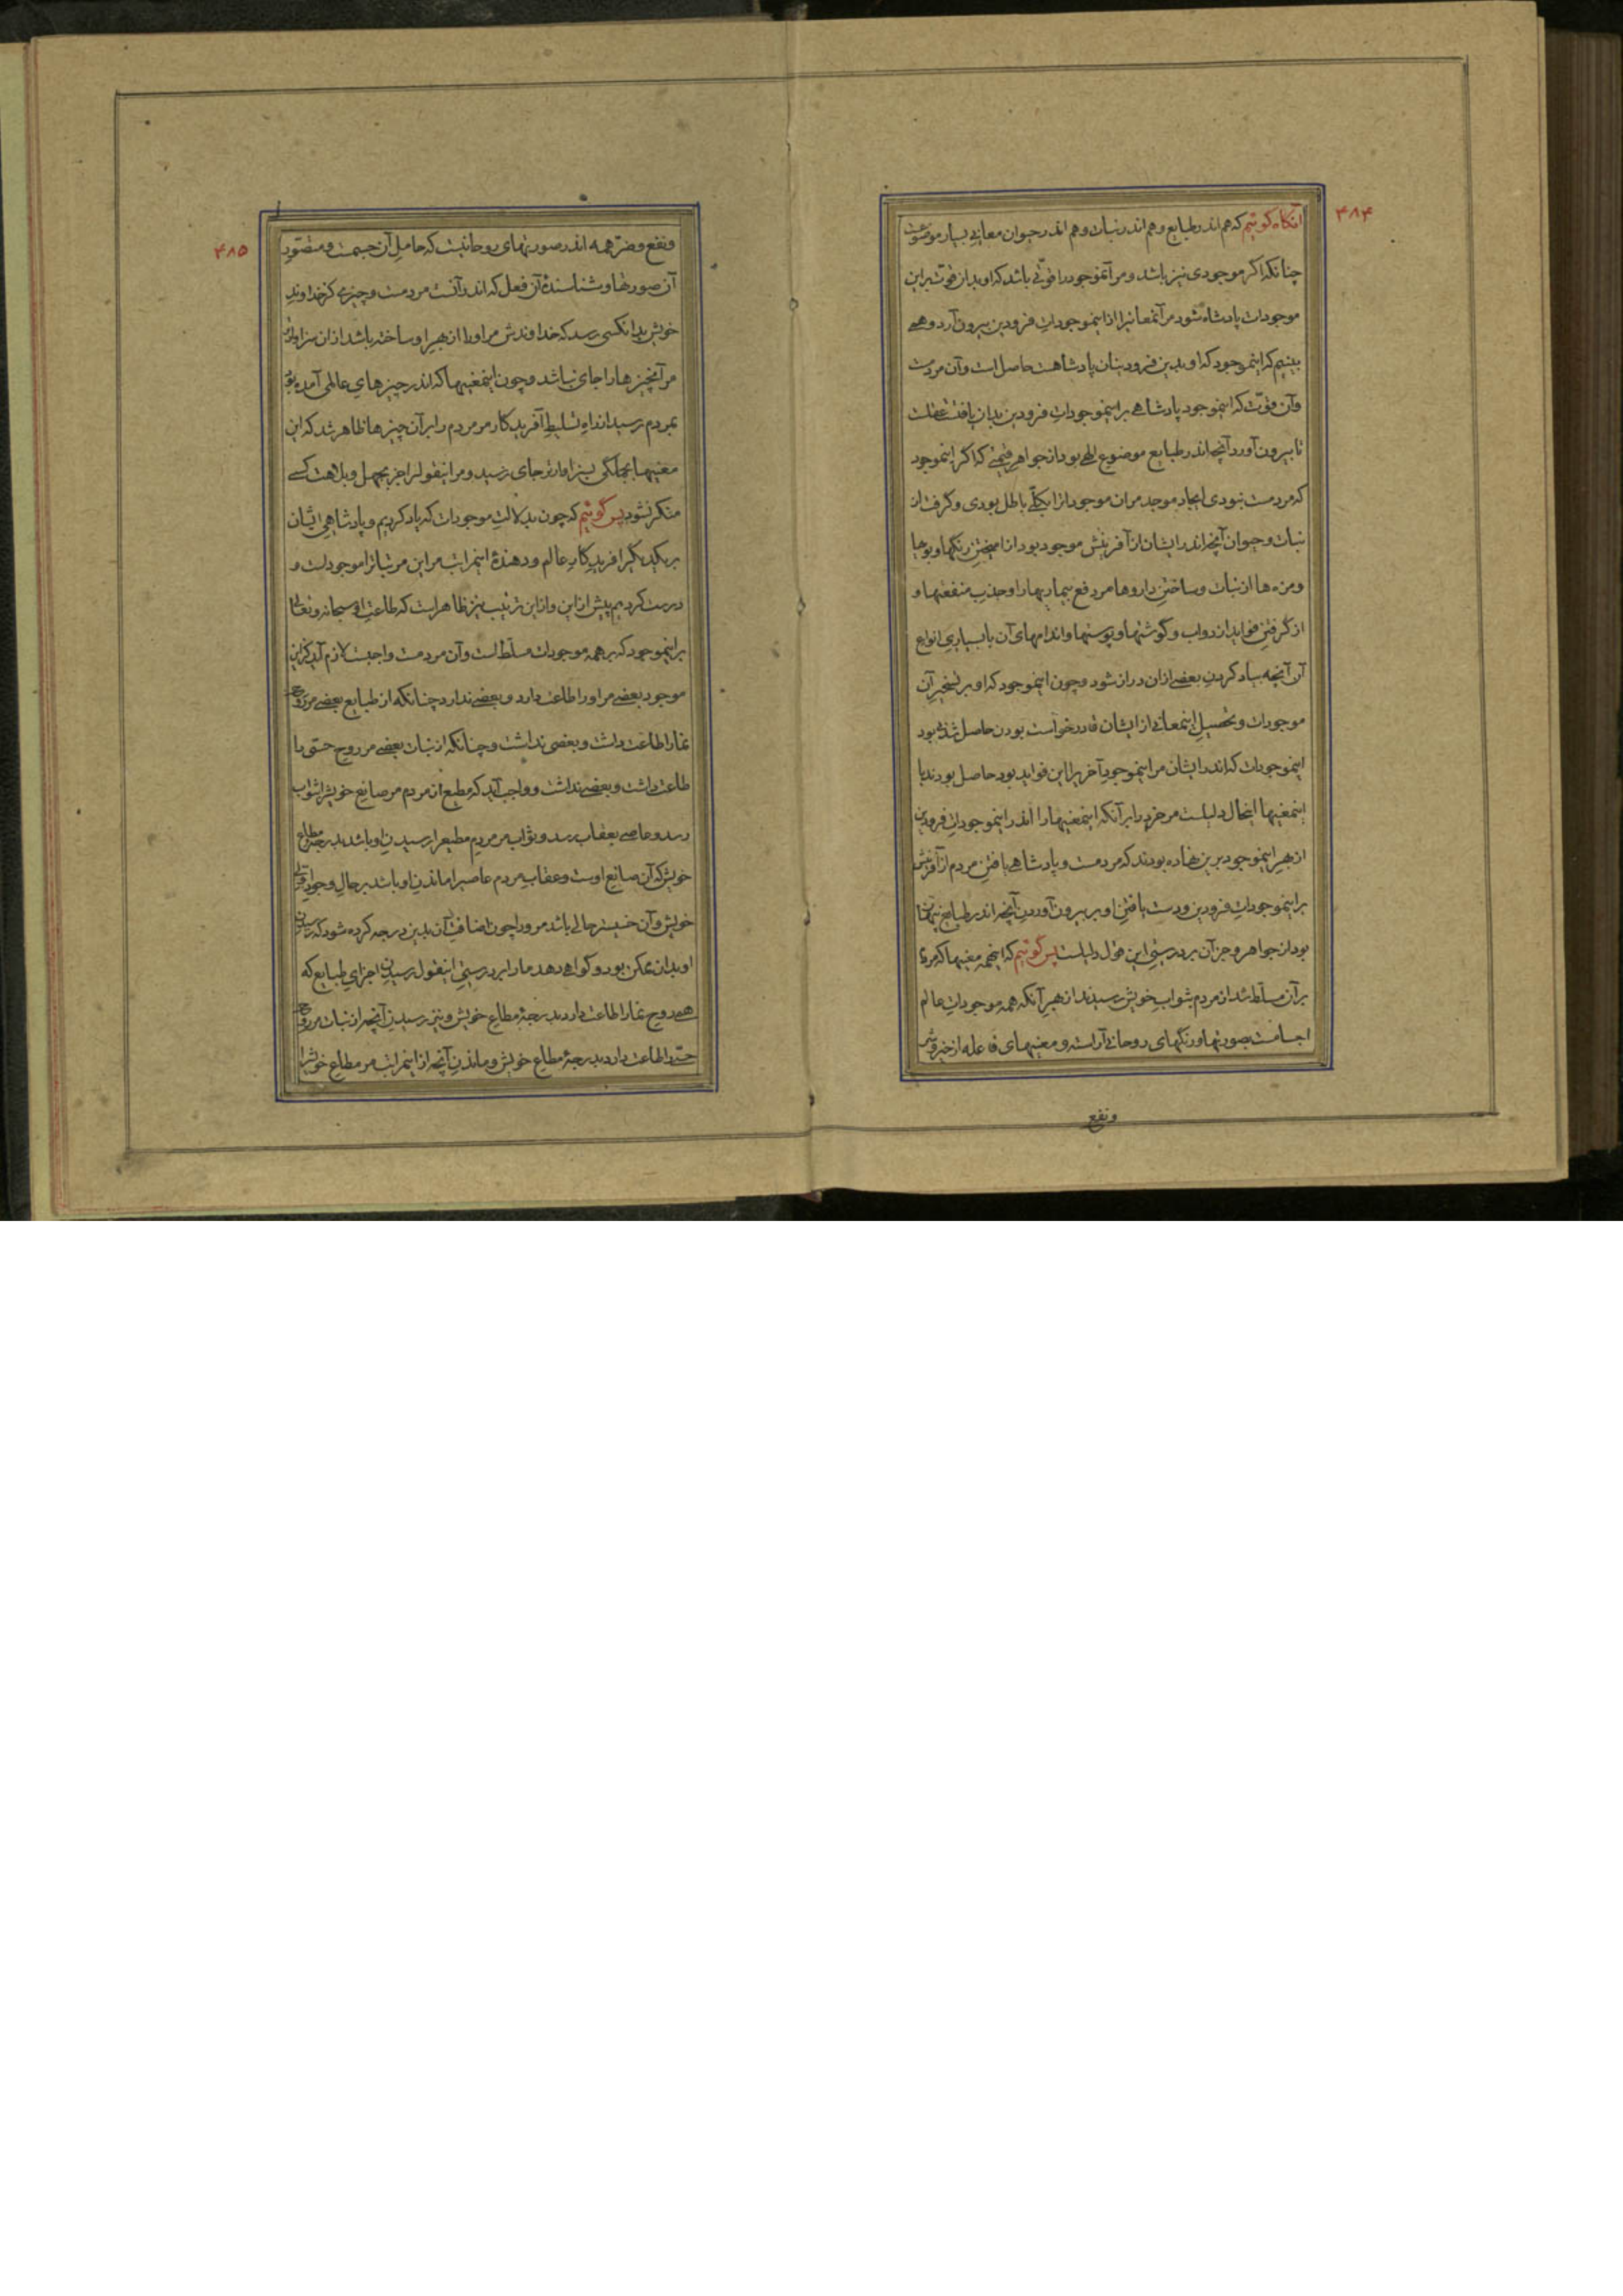 ۴۸۴
آنگاه گوئیم که هم اندر طبایع و هم اندر نبات و هم اندر حیوان معانی بسیار موضوعست
چنانکه اگر موجودی نیز باشد و مر آنموجود را قوتی باشد که او بدان قوت بر این
موجودات پادشاه شود مر آنمعانیرا از اینموجودات فرودین بیرون آرد و همی
بینیم که اینموجود که او بدین فرودینان پادشاهست حاصل است و آن مردمست
و آن قوّت که اینموجود پادشاهی بر اینموجودات فرودین بدان یافت عقلست
تا بیرون آورد آنچه اندر طبایع موضوع الهی بود از جواهر قیمتی که اگر اینموجود
که مردمست نبودی ایجاد موجد مر ان موجوداترا بکلّی باطل بودی و گرفت از
نبات و حیوان آنچه اندر ایشان از آفرینش موجود بود از امیختن رنگها و بویها
و مزه ها از نبات و ساختن داروها مر دفع بیماریها را و جذب منفعتها و
از گرفتن فواید از دواب و گوشتها و پوستها و اندامهای آن با بسیاری انواع
آن آنچه بیاد کردن بعضی ازان دراز شود و چون اینموجود که او بر تسخیر آن
موجودات و تحصیل اینمعانی از ایشان قادر خواست بودن حاصل شدنی بود
اینموجودات که اندر ایشان مر اینموجود آخر را این فواید بود حاصل بودند با
اینمعنیها اینحال دلیلست مر خرد را بر آنکه اینمعنیها را اندر اینموجودات فرودین
از بهر اینموجود برین نهاده بودند که مردمست و پادشاهی یافتن مردم از آفرینش
بر اینموجودات فرودین و دست یافتن او بر بیرون آوردن آنچه اندر طبایع پنهان
بود از جواهر و جز آن بر درستی این قول دلیلست پس گوئیم که اینهمه معنیها که مردم
بر آن مسلّط شد از مردم بثواب خویش رسیدند از بهر آنکه همه موجودات عالم
اجسامست بصورتها و رنگهای روحانی آراسته و معنیهای فاعله از خیر و شر
و نفع
۴۸۵
و نفع و ضر همه اندر صورتهای روحانیست که حامل آن جسمست و متصوّر
آن صورتها و شناسندهٔ آن فعل که اندر آنست مردمست و چیزی کز خداوند
خویش بدانکسی رسد که خداوندش مر اورا از بهر او ساخته باشد ازان سزاوارتر
مر آنچیزها را جای نباشد و چون اینمعنیها که اندر چیزهای عالمی آمده بود
بمردم رسید از راه تسلیط آفریدگار مر مردم را بر آن چیزها ظاهر شد که این
معنیها بجملگی بسزاوارتر جای رسید و مر اینقول را جز بجهل و بلاهت کسی
منکر نشود پس گوئیم که چون بدلالت موجودات که یاد کردیم و پادشاهی ایشان
بر یکدیگر افریدگار عالم و دهندهٔ اینمراتب مر این مرتباترا موجودست و
درست کردیم پیش ازین و از این ترتیب نیز ظاهر است که طاعت او سبحانه و تعالی
بر اینموجود که بر همه موجودات مسلّط است و آن مردمست واجبست لازم آید کزین
موجود بعضی مر اورا طاعت دارد و بعضی ندارد چنانکه از طبایع بعضی مر روح
نما را طاعت داشت و بعضی نداشت و چنانکه از نبات بعضی مر روح حسّی را
طاعت داشت و بعضی نداشت و واجب آید که مطیع از مردم مر صانع خویشرا بثواب
رسد و عاصی بعقاب رسد و ثواب مر مردم مطیع را رسیدن او باشد بدرجهٔ مطاع
خویش که آن صانع اوست و عقاب مردم عاصی را ماندن او باشد بر حال وجود اوّلی
خویش و آن خسیستر حالی باشد مر ورا چون اضافت آن بدین درجه کرده شود که رسیدن
او بدان ممکن بود و گواهی دهد ما را بر درستی اینقول رسیدن اجزای طبایع که
همی روح نما را طاعت دارد بدرجهٔ مطاع خویش و نیز رسیدن آنچه از نبات مر روح
حسّی را طاعت دارد بدرجهٔ مطاع خویش و ماندن آنچه از اینمراتب مر مطاع خویشرا